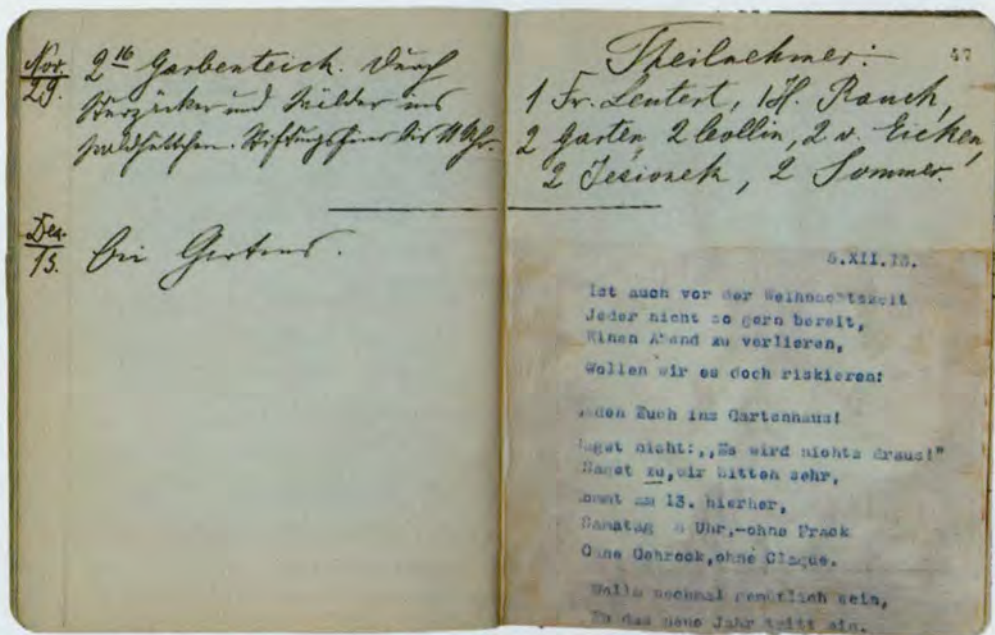 Nov.
29.
2 16 Garbenteich. Durch
Sturzäcker und Wälder ins
Waldhüttchen. Stiftungsfeier bis 11 Uhr.
Dez.
13.
Bei Gartens.
Theilnehmer:
47
1 Fr. Leutert, 1 H. Rauch,
2 Garten, 2 Collin, 2 v. Eicken,
2 Jesionek, 2 Sommer.
5.XII.13.
Ist auch vor der Weihnachtszeit
Jeder nicht so gern bereit,
Einen Abend zu verlieren,
Wollen wir es doch riskieren:
Euch ins Gartenhaus!
Saget nicht: ,,Es wird nichts draus!"
Saget zu, wir bitten sehr,
Kommt am 13. hierher,
Samstag Uhr,-ohne Frack
Ohne Gehrock, ohne Claque.
nochmal gemütlich sein,
das neue Jahr tritt ein.